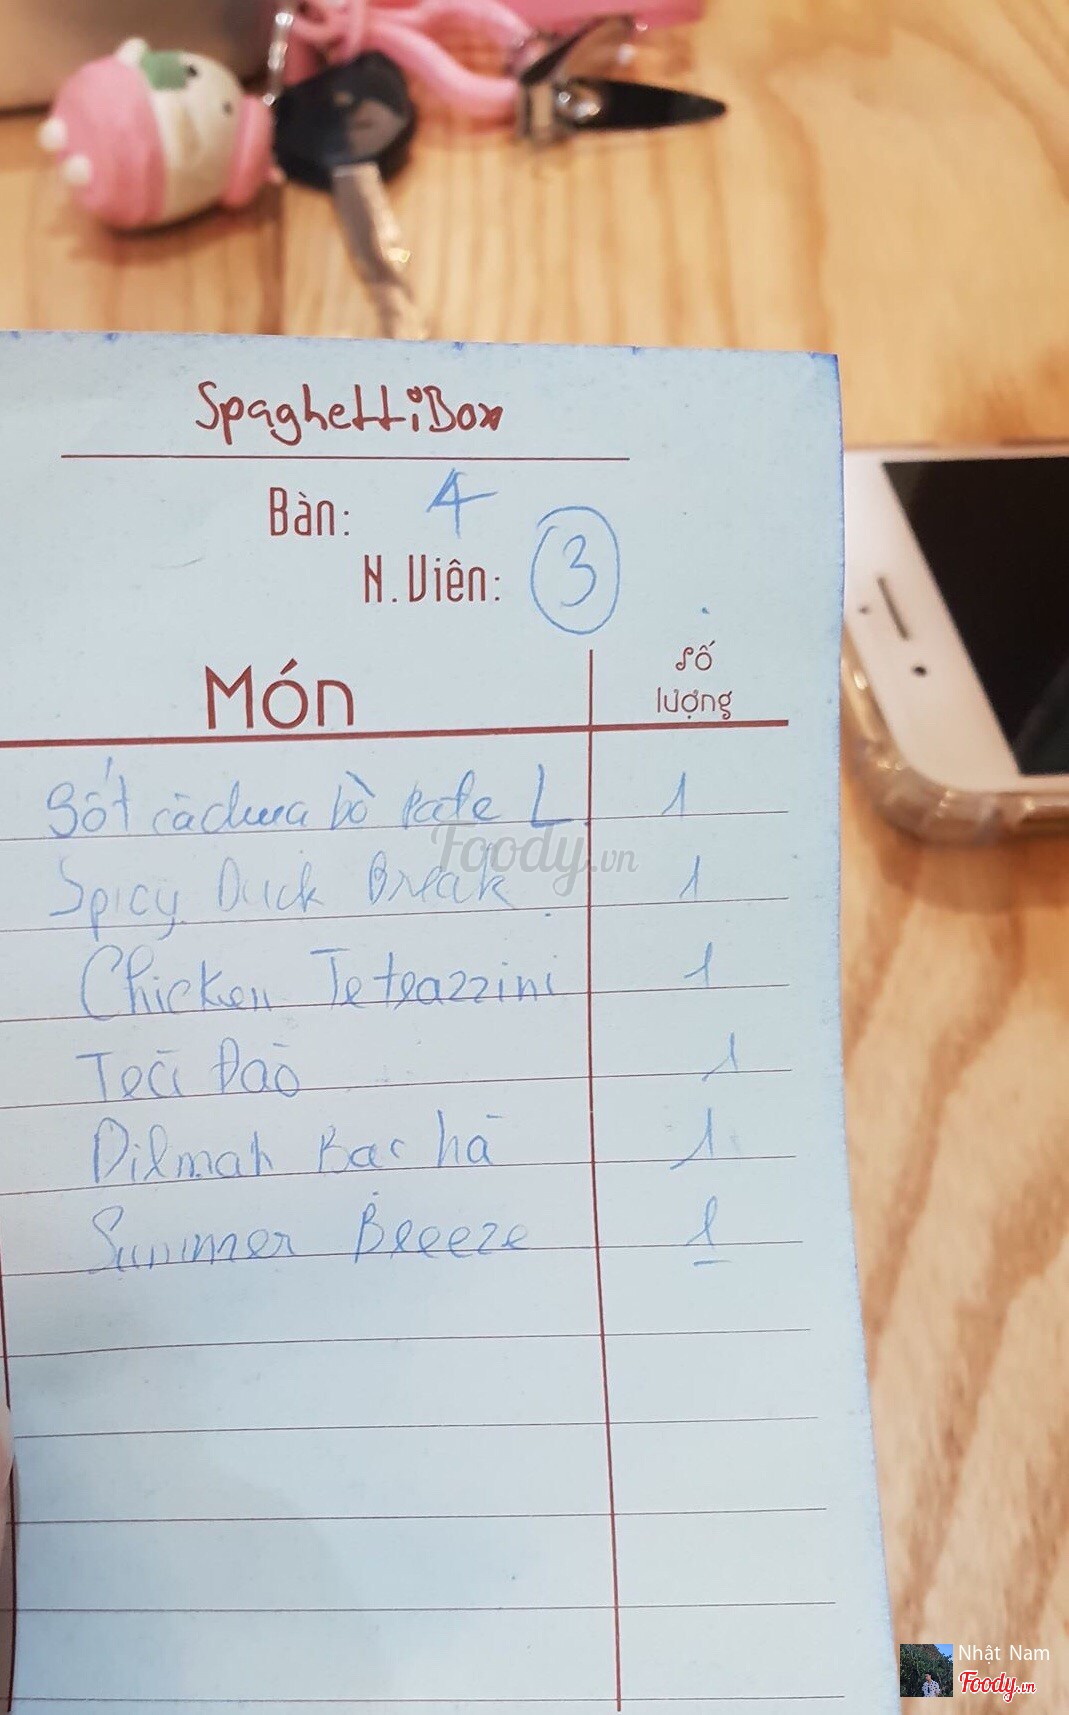 SpaghettiBox
Bàn: 4
N.Viên: 3
Món
số lượng
Sốt cà chua bò pate L 1
Foody.vn
Spicy Duck Break 1
Chicken Tetrazzini 1
Trà Đào 1
Dilmah Bạc hà 1
Summer Breeze 1
Nhật Nam
Foody.vn